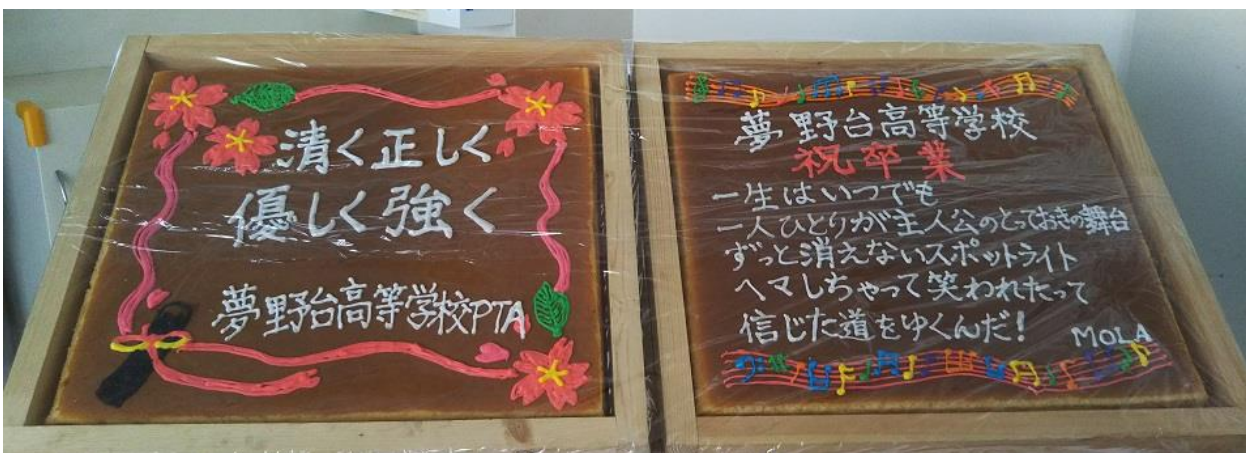 清く正しく
優しく強く
夢野台高等学校PTA
夢野台高等学校
祝卒業
一生はいつでも
一人ひとりが主人公のとっておきの舞台
ずっと消えないスポットライト
ヘマしちゃって笑われたって
信じた道をゆくんだ!
MOLA